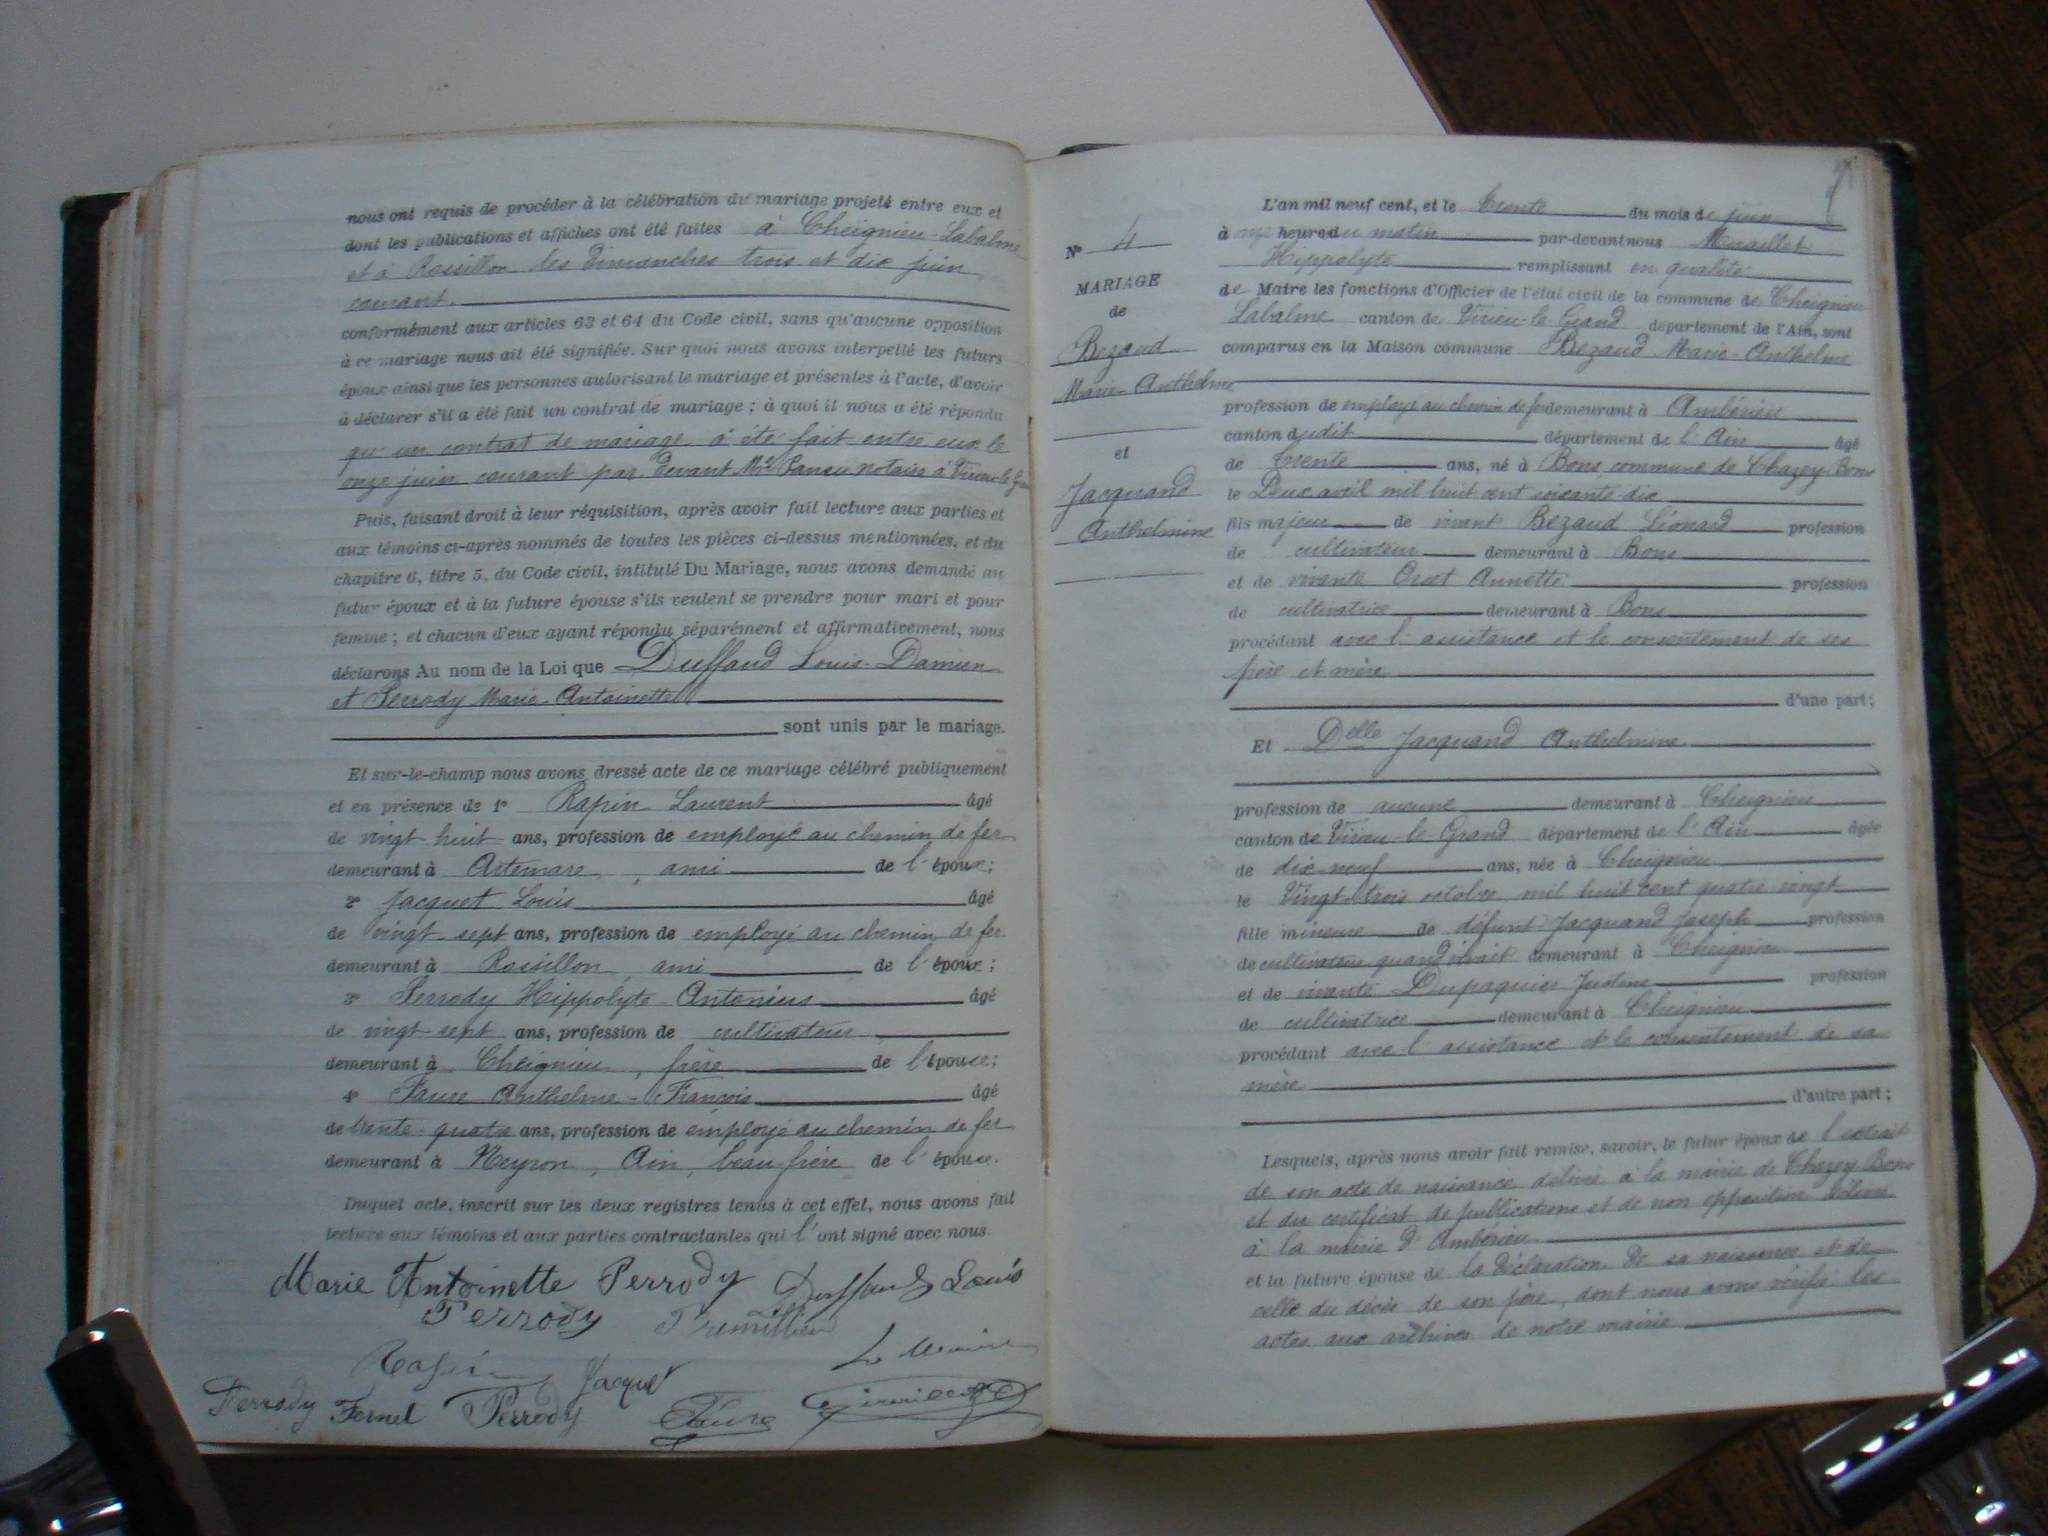 nous ont requis de procéder à la célébration du mariage projeté entre eux et
dont les publications et affiches ont été faites à Cheignieu-Labalme
et à Rossillon les dimanches trois et dix juin
courant.
conformément aux articles 63 et 64 du Code civil, sans qu'aucune opposition
à ce mariage nous ait été signifiée. Sur quoi nous avons interpellé les futurs
époux ainsi que les personnes autorisant le mariage et présentes à l'acte, d'avoir
à déclarer s'il a été fait un contrat de mariage ; à quoi il nous a été répondu
qu'un contrat de mariage a été fait entre eux le
onze juin courant par devant Me notaire à Virieu-le-Gd
Puis, faisant droit à leur réquisition, après avoir fait lecture aux parties et
aux témoins ci-après nommés de toutes les pièces ci-dessus mentionnées, et du
chapitre 6, titre 5, du Code civil, intitulé Du Mariage, nous avons demandé au
futur époux et à la future épouse s'ils veulent se prendre pour mari et pour
femme ; et chacun d'eux ayant répondu séparément et affirmativement, nous
déclarons Au nom de la Loi que Duffaud Louis-Damien
et Perrody Marie-Antoinette
sont unis par le mariage.
Et sur-le-champ nous avons dressé acte de ce mariage célébré publiquement
et en présence de 1° Rapin Laurent âgé
de vingt-huit ans, profession de employé au chemin de fer
demeurant à Artemare, ami de l'époux;
2° Jacquet Louis âgé
de vingt-sept ans, profession de employé au chemin de fer
demeurant à Rossillon, ami de l'époux;
3° Perrody Hippolyte-Antonius âgé
de vingt-sept ans, profession de cultivateur
demeurant à Cheignieu, frère de l'épouse;
4° Faure Anthelme-François âgé
de trente-quatre ans, profession de employé au chemin de fer
demeurant à Neyron, Ain, beau-frère de l'épouse.
Duquel acte, inscrit sur les deux registres tenus à cet effet, nous avons fait
lecture aux témoins et aux parties contractantes qui l'ont signé avec nous.
Marie Antoinette Perrody Duffaud Louis
Perrody
Rapin Jacquet Le Maire
Perrody Fernel Perrody Faure
N° 4
MARIAGE
de
Bezaud
Marie-Anthelme
et
Jacquand
Anthelmine
L'an mil neuf cent, et le trente du mois de juin
à onze heures du matin par-devant nous
Hippolyte remplissant en qualité
de Maire les fonctions d'Officier de l'état civil de la commune de Cheignieu
Labalme canton de Virieu-le-Grand département de l'Ain, sont
comparus en la Maison commune Bezaud Marie-Anthelme
profession de employé au chemin de fer demeurant à Ambérieu
canton dudit département de l'Ain âgé
de trente ans, né à Bons commune de Chazey-Bons
le Deux avril mil huit cent soixante-dix
fils majeur de vivant Bezaud Léonard profession
de cultivateur demeurant à Bons
et de vivante Annette profession
de cultivatrice demeurant à Bons
procédant avec l'assistance et le consentement de ses
père et mère
d'une part;
Et Delle Jacquand Anthelmine
profession de aucune demeurant à Cheignieu
canton de Virieu-le-Grand département de l'Ain âgée
de dix-neuf ans, née à Cheignieu
le Vingt-trois octobre mil huit cent quatre-vingt
fille mineure de défunt Jacquand Joseph profession
de cultivateur quand vivait demeurant à Cheignieu
et de vivante Dupaquier Justine profession
de cultivatrice demeurant à Cheignieu
procédant avec l'assistance et le consentement de sa
mère
d'autre part;
Lesquels, après nous avoir fait remise, savoir, le futur époux de l'extrait
de son acte de naissance délivré à la mairie de Chazey-Bons
et du certificat de publications et de non opposition délivré
à la mairie d'Ambérieu
et la future épouse de la déclaration de sa naissance et de
celle du décès de son père, dont nous avons vérifié les
actes aux archives de notre mairie